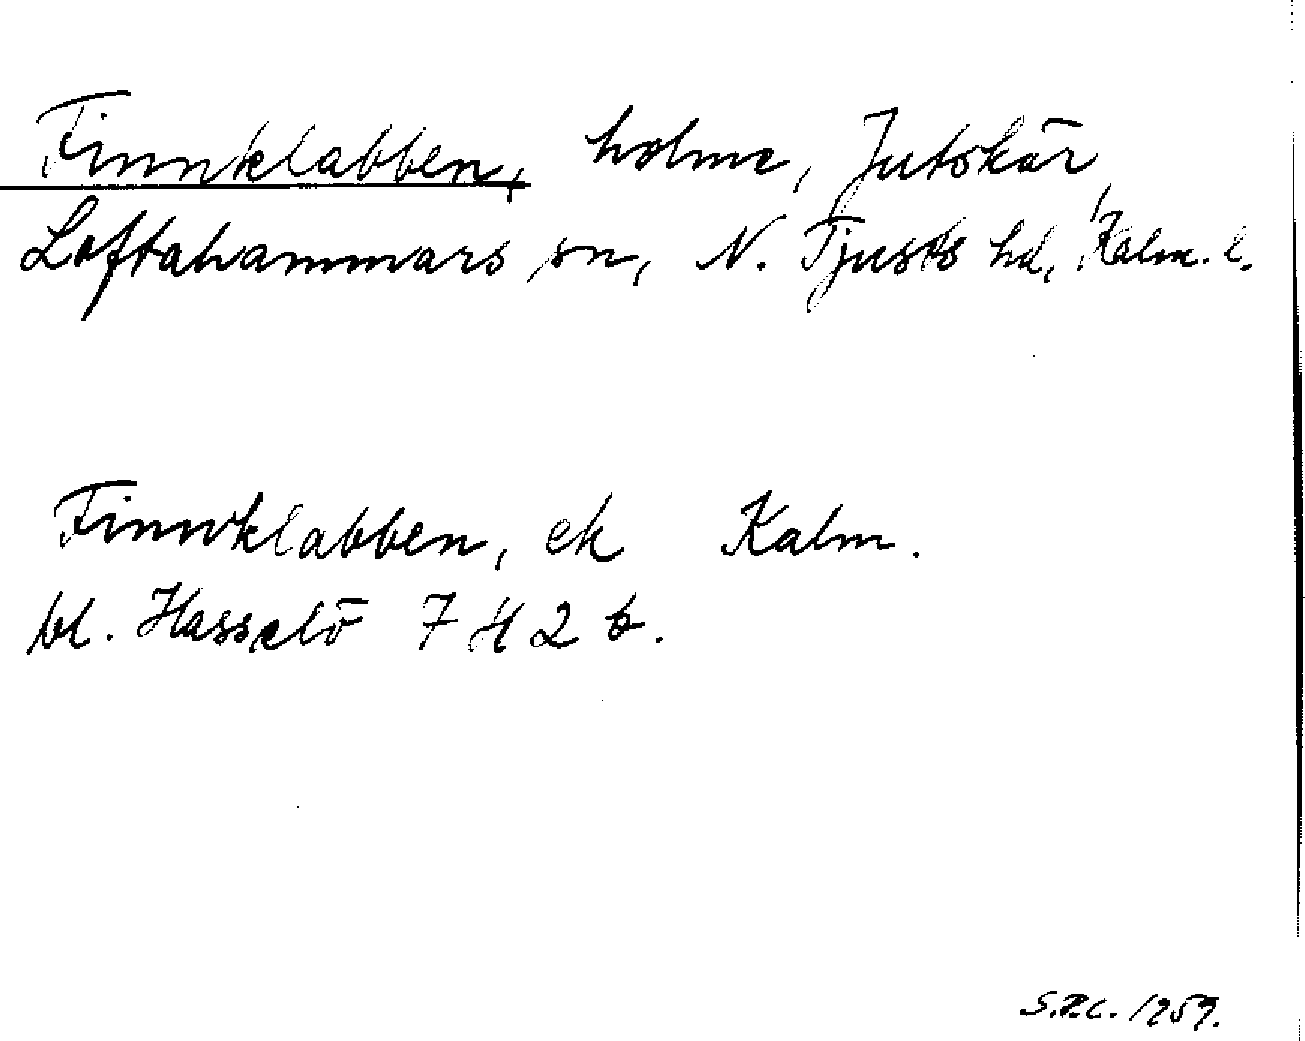 Finnklabben, holme, Jutskär,
Loftahammars sn, N. Tjusts hd, Kalm. l.
Finnklabben, ek Kalm.
bl. Hasselö 7 H 2 b.
S.R.C. 1959.